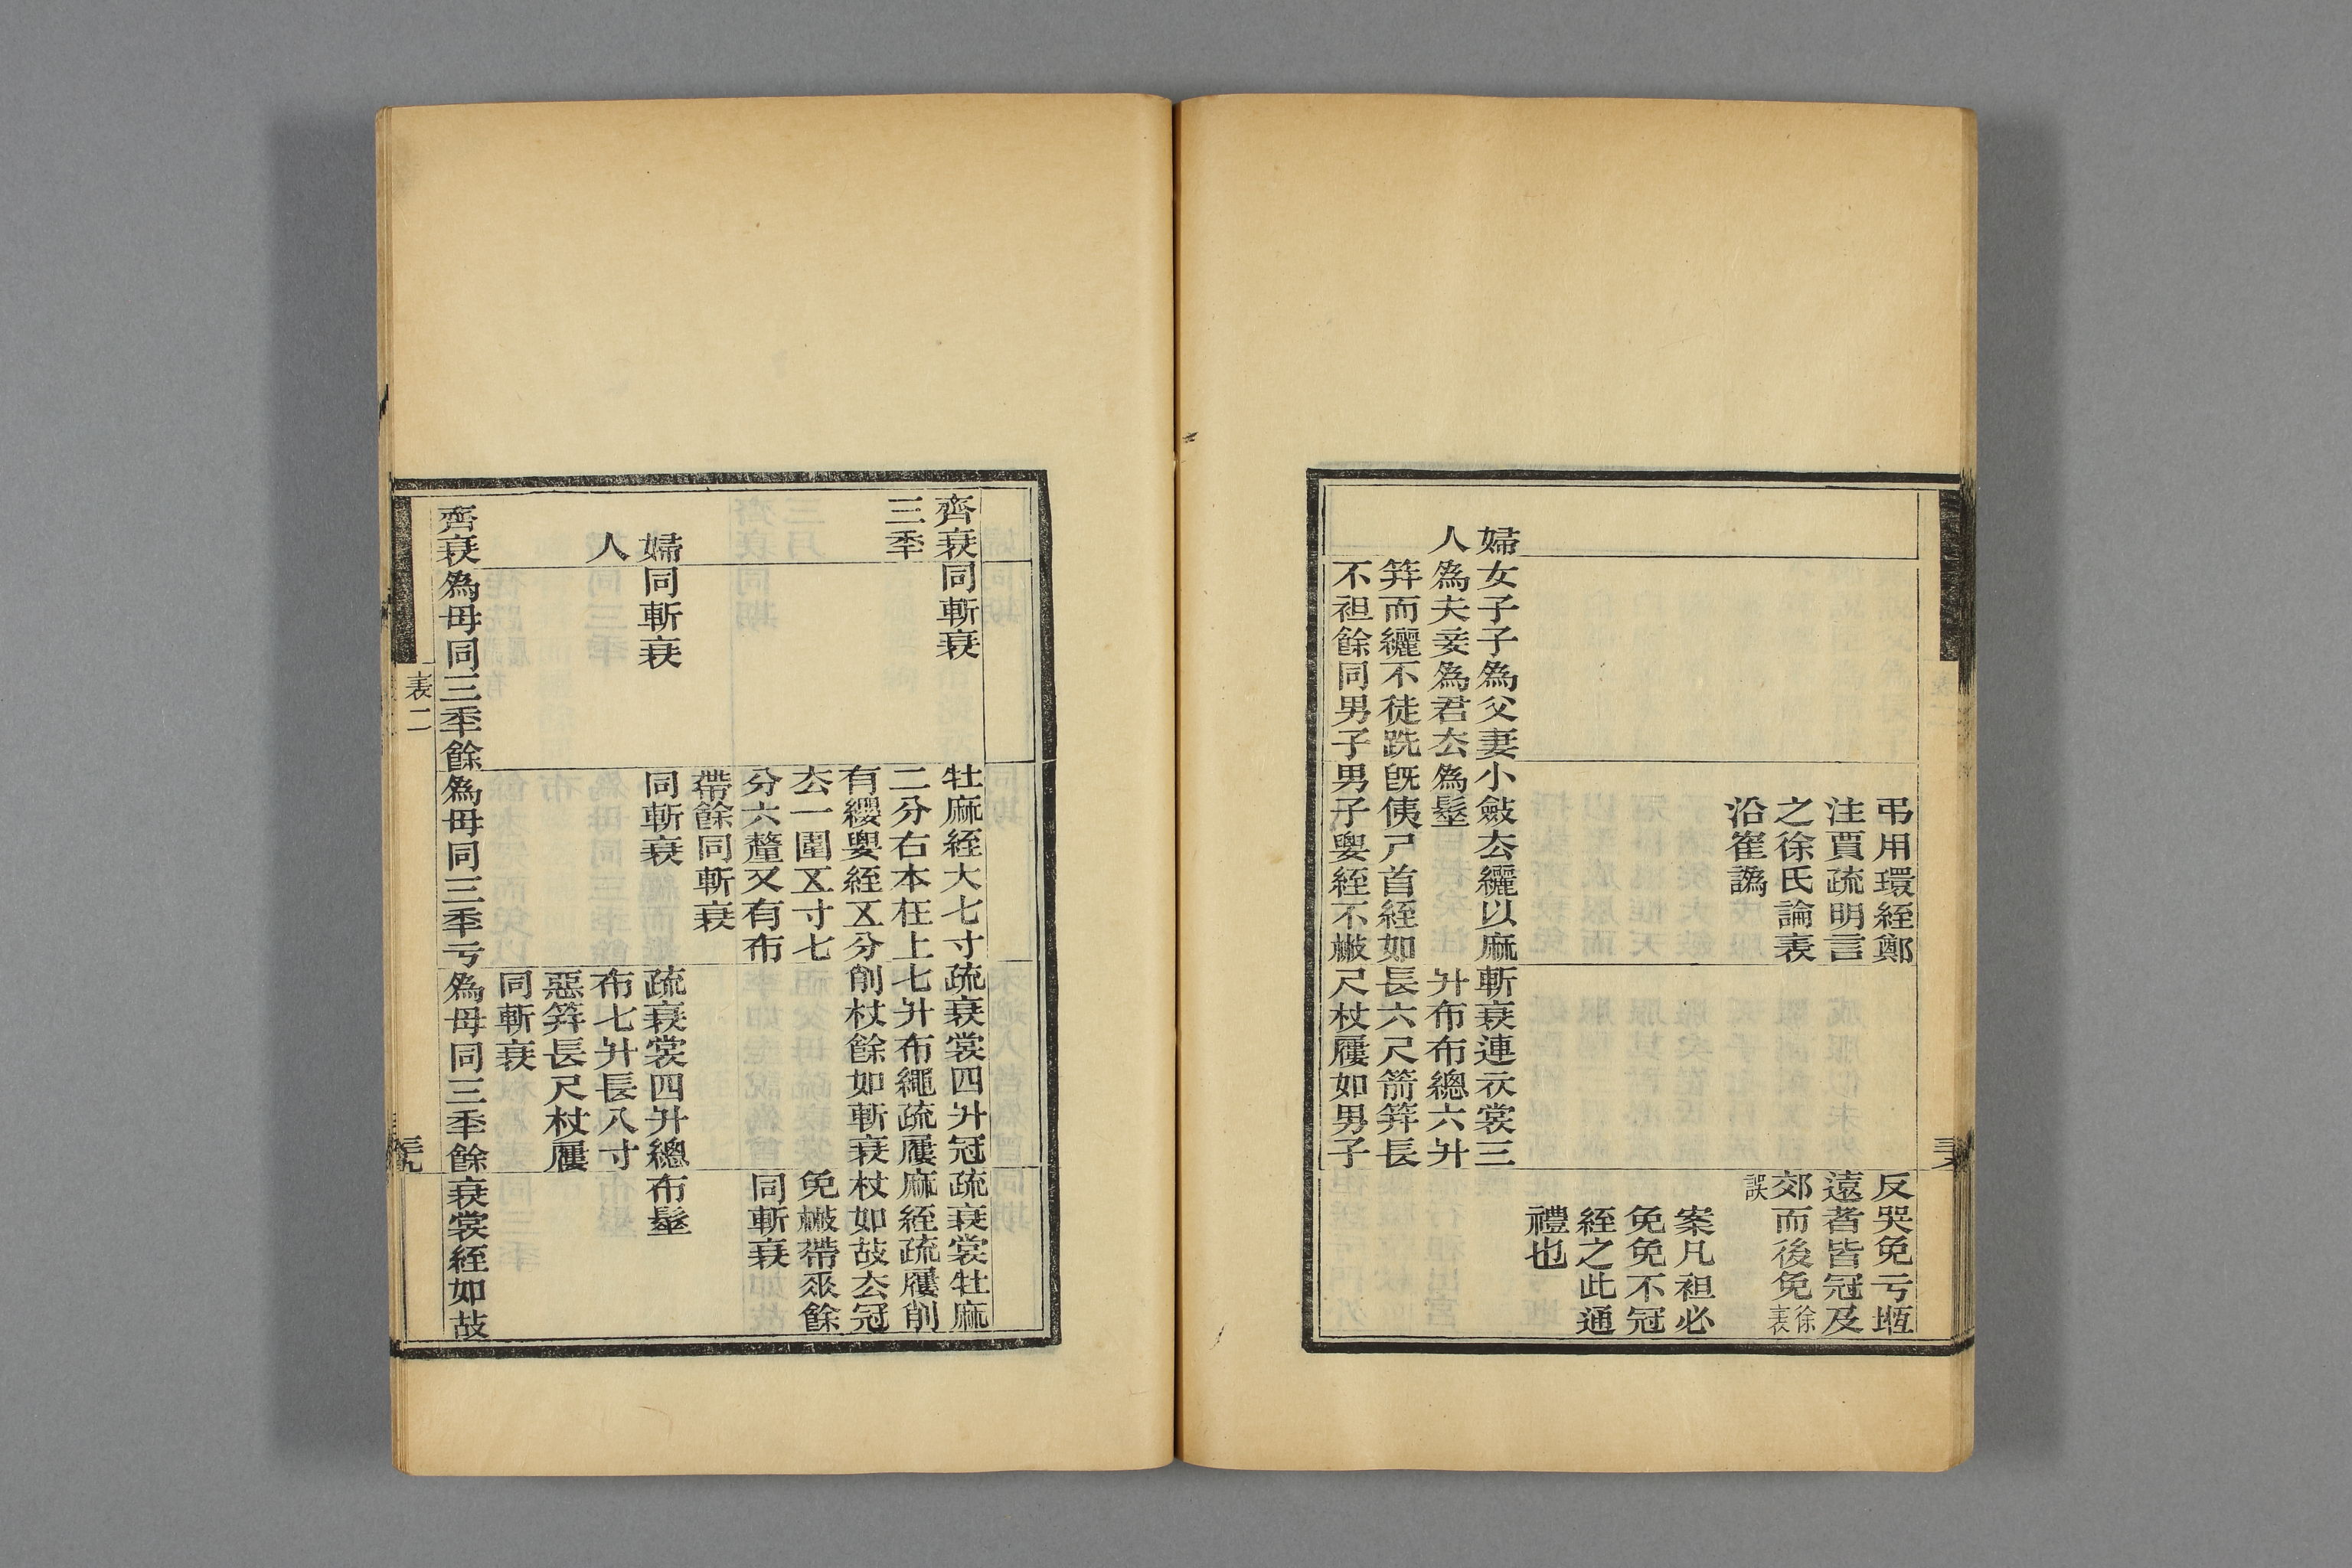 弔用環絰鄭
注賈疏明言
之徐氏論表
沿崔譌
反哭免亏堩
遠者皆冠及
郊而後免徐表
誤
案凡袒必
免免不冠
絰之此通
禮也
婦
人
女子子爲父妻
爲夫妾爲君厺
笄而纚不徒跣
不袒餘同男子
小斂厺纚以麻
爲髽
旣侇尸首絰如
男子要絰不㪔
斬衰連衣裳三
升布布總六升
長六尺箭笄長
尺杖屨如男子
三十八
齊衰
三秊
同斬衰
牡麻絰大七寸
二分右本在上
有纓要絰五分
厺一圍五寸七
分六釐又有布
帶餘同斬衰
疏衰裳四升冠
七升布繩疏屨
削杖餘如斬衰
疏衰裳牡麻
麻絰疏屨削
杖如故厺冠
免㪔帶𠂹餘
同斬衰
婦
人
同斬衰
同斬衰
疏衰裳四升總
布七升長八寸
惡笄長尺杖屨
同斬衰
布髽
齊衰
爲母同三秊餘
爲母同三秊亏
爲母同三秊餘
衰裳絰如故
表二
三十九